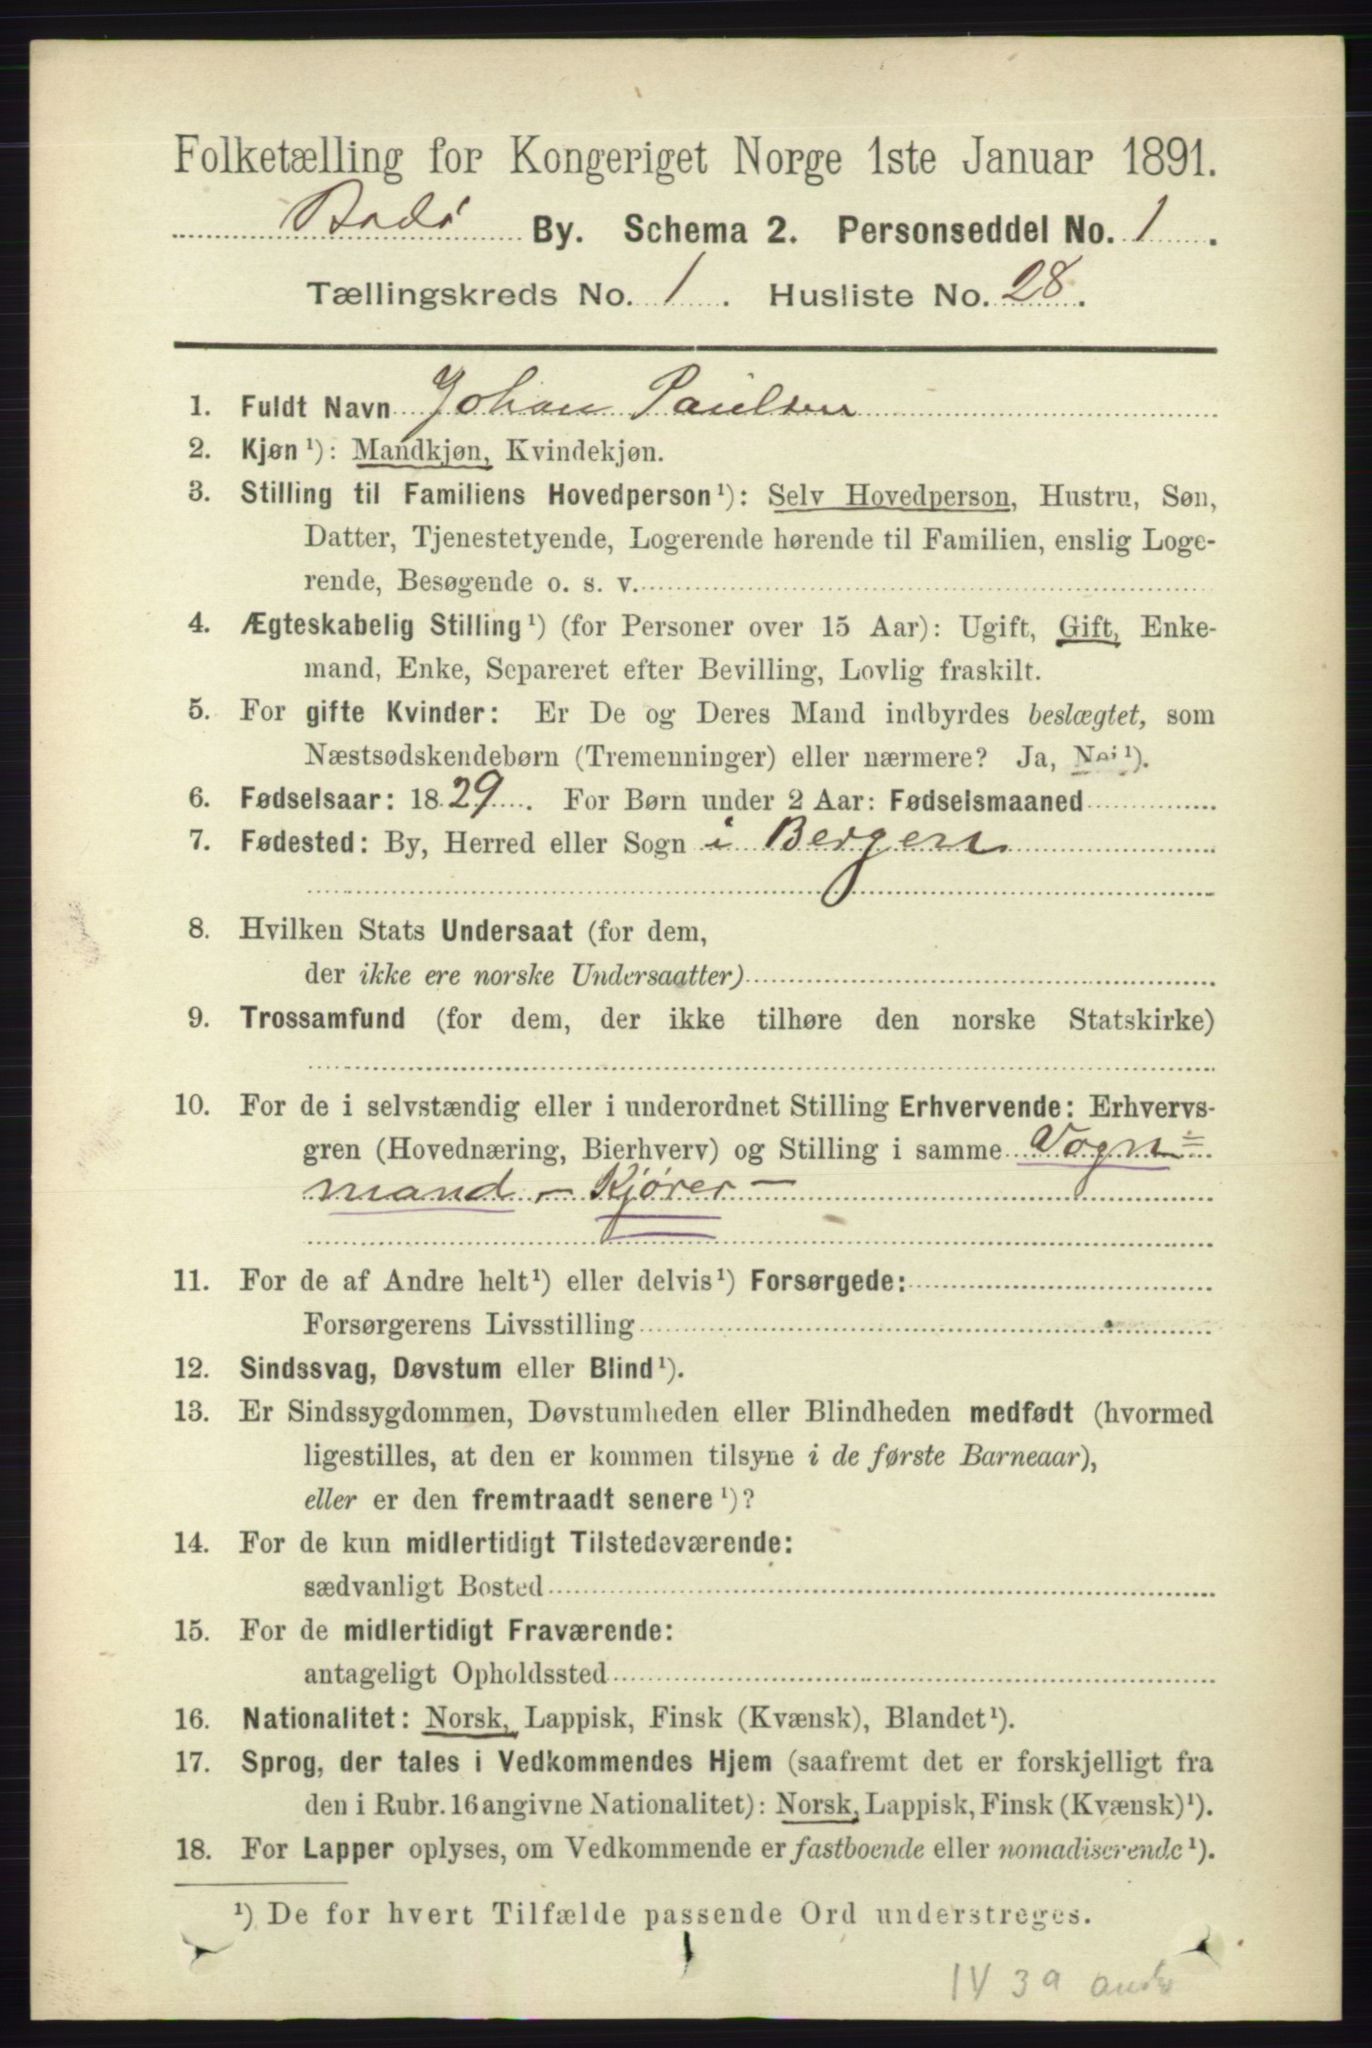 Folketælling for Kongeriget Norge 1ste Januar 1891.
Bodø By. Schema 2. Personseddel No. 1.
Tællingskreds No. 1. Husliste No. 28.
1. Fuldt Navn Johan Paulsen
2. Kjøn¹): Mandkjøn, Kvindekjøn.
3. Stilling til Familiens Hovedperson¹): Selv Hovedperson, Hustru, Søn,
Datter, Tjenestetyende, Logerende hørende til Familien, enslig Loge-
rende, Besøgende o. s. v.
4. Ægteskabelig Stilling¹) (for Personer over 15 Aar): Ugift, Gift, Enke-
mand, Enke, Separeret efter Bevilling, Lovlig fraskilt.
5. For gifte Kvinder: Er De og Deres Mand indbyrdes beslægtet, som
Næstsødskendebørn (Tremenninger) eller nærmere? Ja, Nei¹).
6. Fødselsaar: 1829. For Børn under 2 Aar: Fødselsmaaned
7. Fødested: By, Herred eller Sogn i Bergen
8. Hvilken Stats Undersaat (for dem,
der ikke ere norske Undersaatter)
9. Trossamfund (for dem, der ikke tilhøre den norske Statskirke)
10. For de i selvstændig eller i underordnet Stilling Erhvervende: Erhvervs-
gren (Hovednæring, Bierhverv) og Stilling i samme Vogn=
mand - Kjører -
11. For de af Andre helt¹) eller delvis¹) Forsørgede:
Forsørgerens Livsstilling
12. Sindssvag, Døvstum eller Blind¹).
13. Er Sindssygdommen, Døvstumheden eller Blindheden medfødt (hvormed
ligestilles, at den er kommen tilsyne i de første Barneaar),
eller er den fremtraadt senere¹)?
14. For de kun midlertidigt Tilstedeværende:
sædvanligt Bosted
15. For de midlertidigt Fraværende:
antageligt Opholdssted
16. Nationalitet: Norsk, Lappisk, Finsk (Kvænsk), Blandet¹).
17. Sprog, der tales i Vedkommendes Hjem (saafremt det er forskjelligt fra
den i Rubr. 16 angivne Nationalitet): Norsk, Lappisk, Finsk (Kvænsk)¹).
18. For Lapper oplyses, om Vedkommende er fastboende eller nomadiserende¹).
¹) De for hvert Tilfælde passende Ord understreges.
IV 39